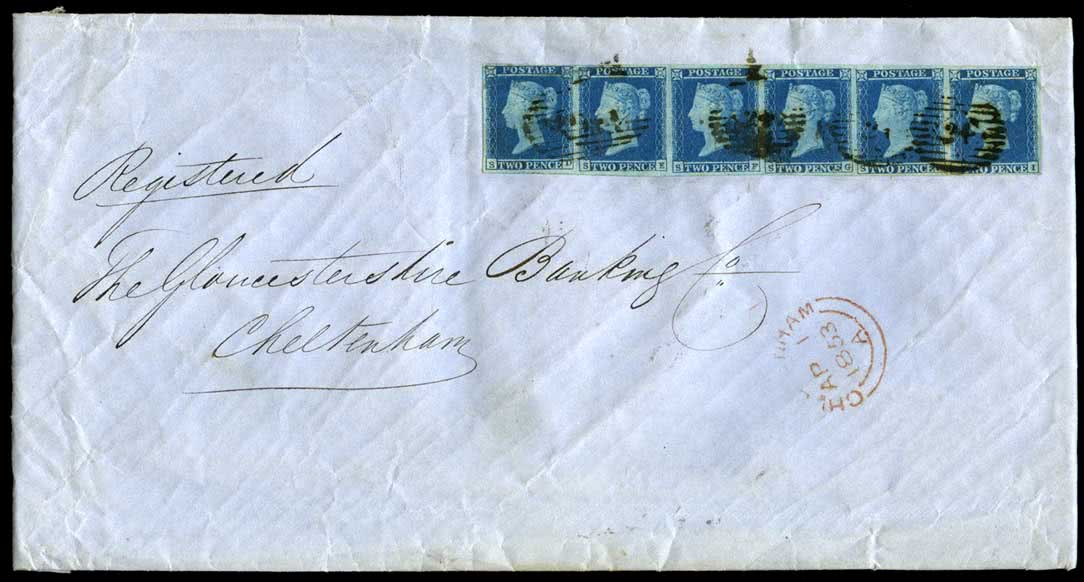 POSTAGE POSTAGE POSTAGE POSTAGE POSTAGE POSTAGE
S TWO PENCE D S TWO PENCE E S TWO PENCE F S TWO PENCE G S TWO PENCE TWO PENCE I
Registered
The Gloucestershire Banking Co
Cheltenham
AP 1
1853
A